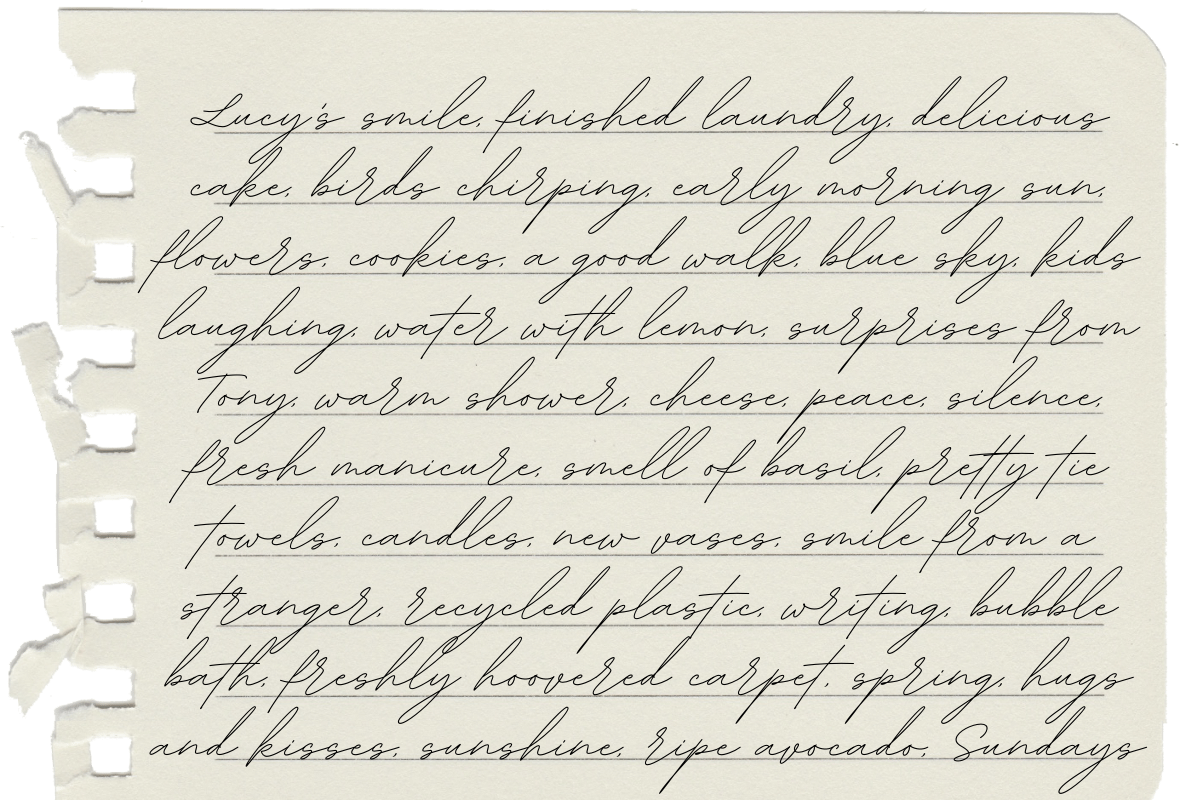 Lucy's smile, finished laundry, delicious
cake, birds chirping, early morning sun,
flowers, cookies, a good walk, blue sky, kids
laughing, water with lemon, surprises from
Tony, warm shower, cheese, peace, silence,
fresh manicure, smell of basil, pretty tie
towels, candles, new vases, smile from a
stranger, recycled plastic, writing, bubble
bath, freshly hoovered carpet, spring, hugs
and kisses, sunshine, ripe avocado, Sundays